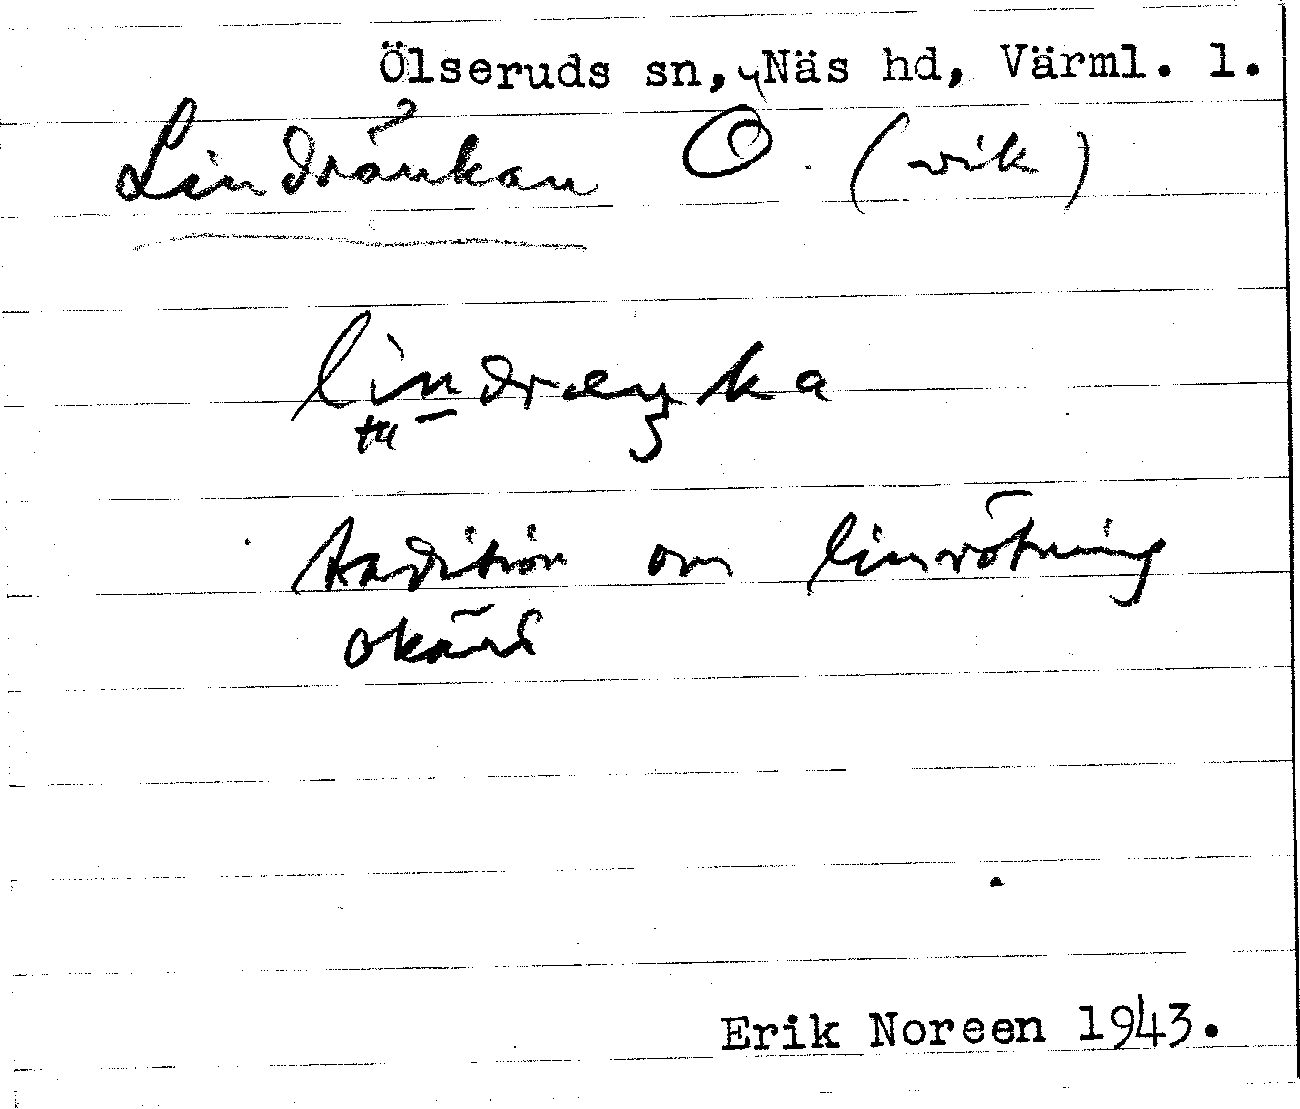 Ölseruds sn, Näs hd, Värml. l.
Lindränkan O (vik)
lindræŋka
tradition om linrötning
okänd
Erik Noreen 1943.